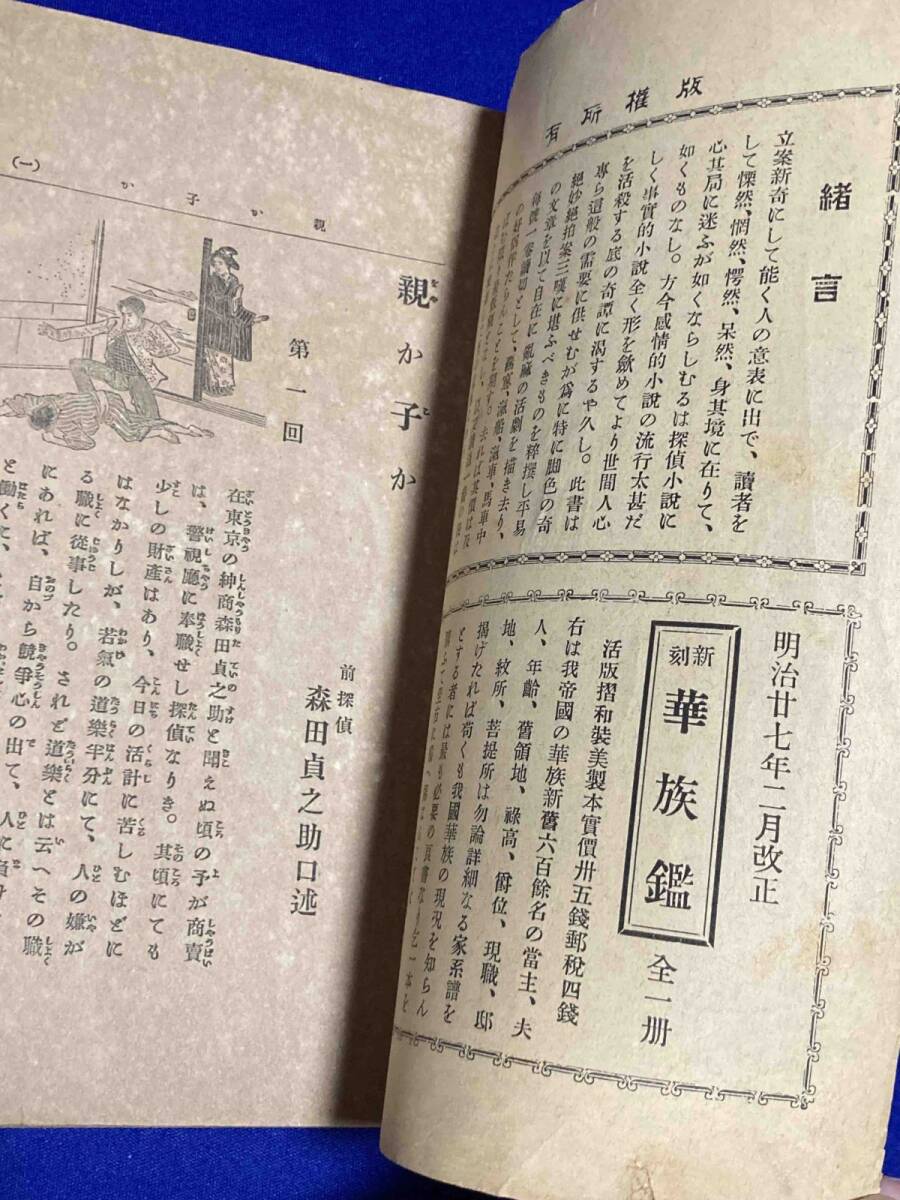 版權所有
緒言
立案新奇にして能く人の意表に出で、讀者を
して慄然、惘然、愕然、呆然、身其境に在りて、
心其局に迷ふが如くならしむるは探偵小説に
如くものなし。方今感情的小説の流行太甚だ
しく事實的小説全く形を歛めてより世間人心
を活殺する底の奇譚に渇するや久し。此書は
專ら這般の需要に供せむが爲に特に脚色の奇
絶妙絶拍案三嘆に堪ふべきものを粹撰し平易
の文章を以て自在に
の活劇を描き去り、
每號一卷讀切として、
滊船、滊車、馬車中
の好
去れば其價は
明治廿七年二月改正
新刻
華族鑑
全一册
活版摺和裝美製本實價卅五錢郵稅四錢
右は我帝國の華族新舊六百餘名の當主、夫
人、年齡、舊領地、祿高、爵位、現職、邸
地、紋所、菩提所は勿論詳細なる家系譜を
揭げたれば苟くも我國華族の現況を知らん
とする者には最も必要の
一本を
親か子か
(一)
親か子か
第一回
前探偵
森田貞之助口述
在東京の紳商森田貞之助と聞えぬ頃の予が商賣
は、警視廳に奉職せし探偵なりき。其頃にても
少しの財產はあり、今日の活計に苦しむほどに
はなかりしが、若氣の道樂半分にて、人の嫌が
る職に從事したり。されど道樂とは云へその職
にあれば、自から競爭心の出て、人に負け
と働くに、